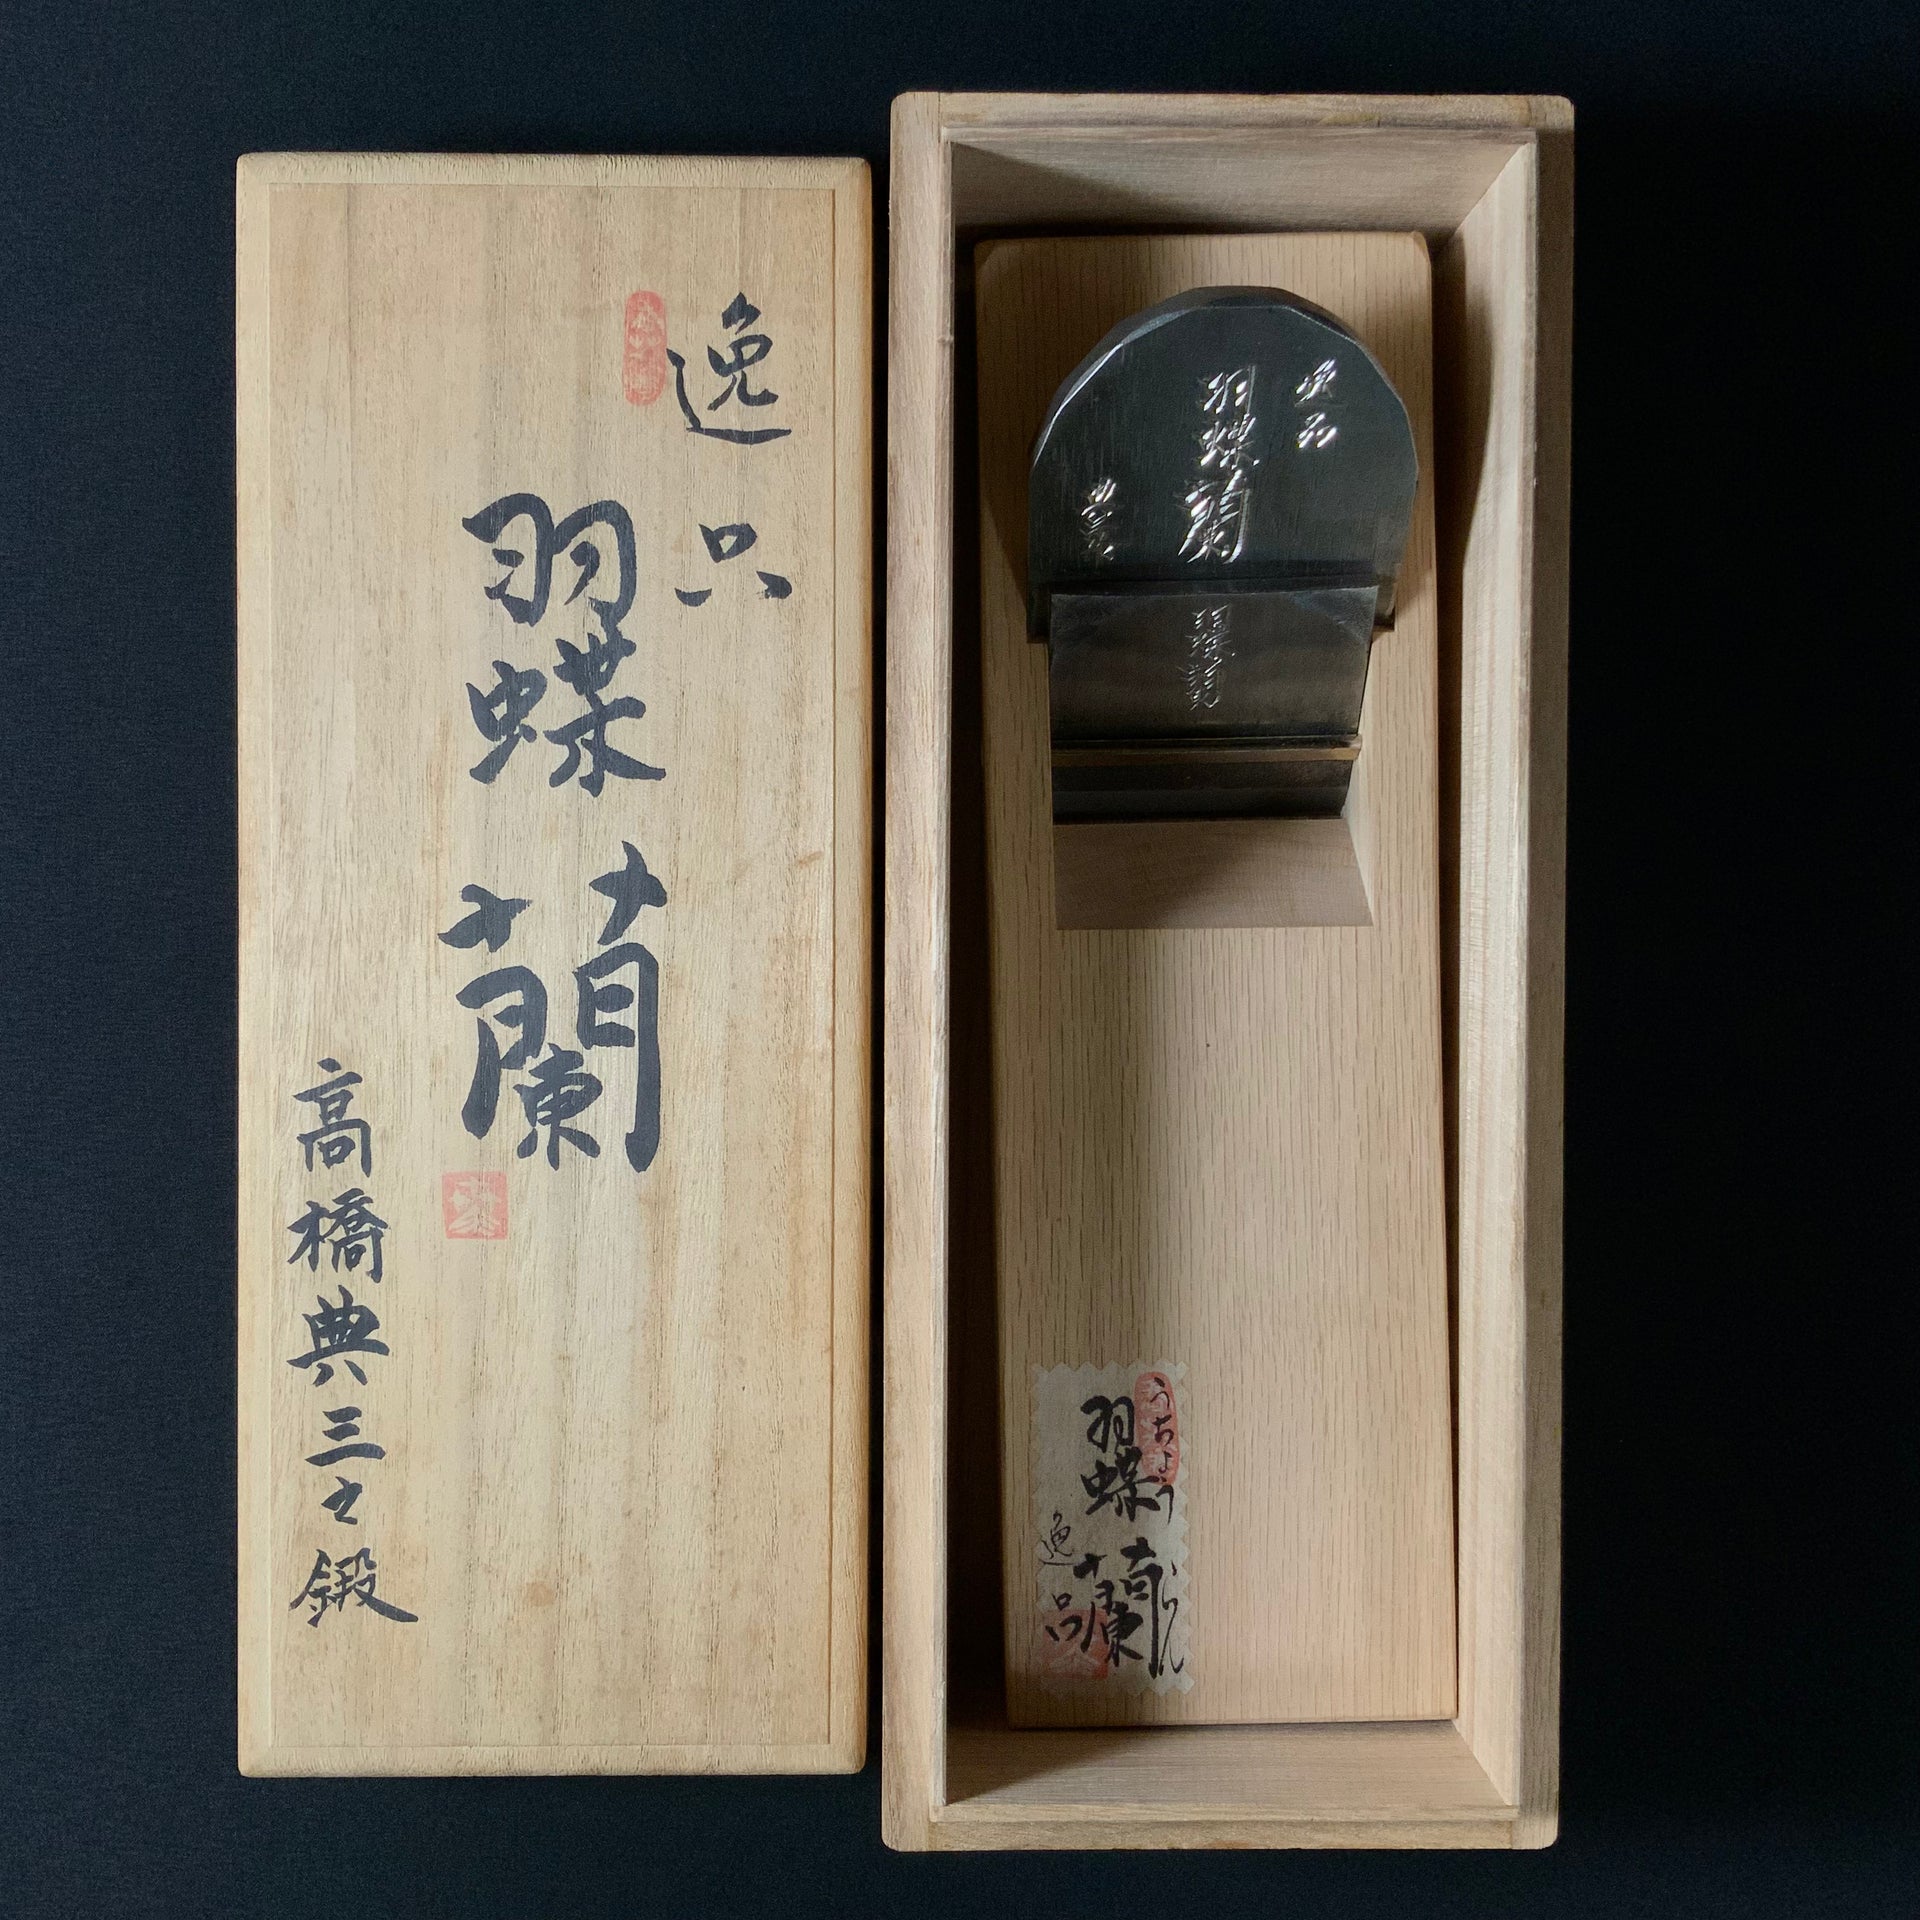 逸品
羽蝶蘭
高橋典三之鍛
逸品
羽蝶蘭
典三
羽蝶蘭
うちょうらん
羽蝶蘭
逸品